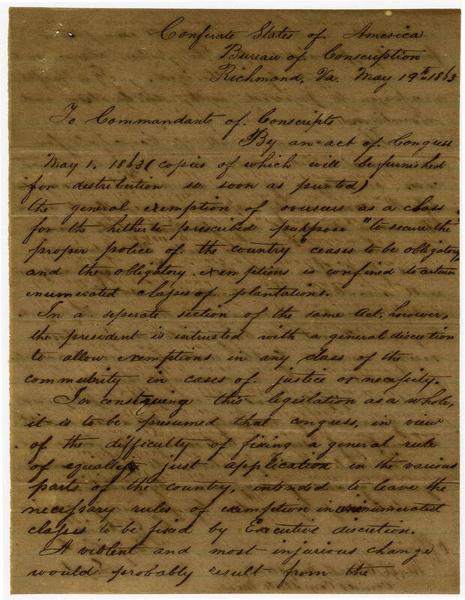 Conferate States of America
Bureau of Conscription
Richmond, Va. May 19th 1863
To Commandants of Conscripts
By an act of Congress
May 1. 1863 (copies of which will be furnished
for distribution so soon as printed)
the general exemption of overseers as a class
for the hitherto prescribed purpose "to secure the
proper police of the country" ceases to be obligatory
and the obligatory exemptions is confined to certain
enumerated classes of plantations.
In a seperate section of the same Act, however,
the president is intrusted with a general discretion
to allow exemptions in any class of the
community in cases of justice or necessity.
In construing this legislation as a whole,
it is to be presumed that congress, in view
of the difficulty of fixing a general rule
of equally just application in the various
parts of the country, intended to leave the
necessary rules of exemption in enumerated
classes to be fixed by Executive discretion.
A violent and most injurious change
would probably result from the